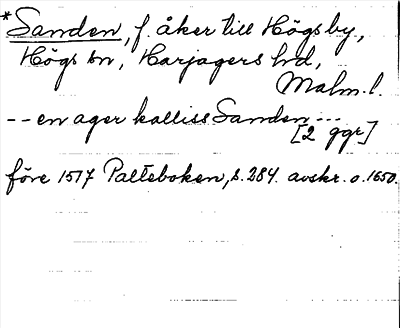 *Sanden, f. åker till Högsby,
Högs sn, Harjagers hd,
Malm. l.
-- en ager kalliss Sanden ...
[2 ggr]
före 1517 Palteboken, s. 284. avskr. o. 1650.